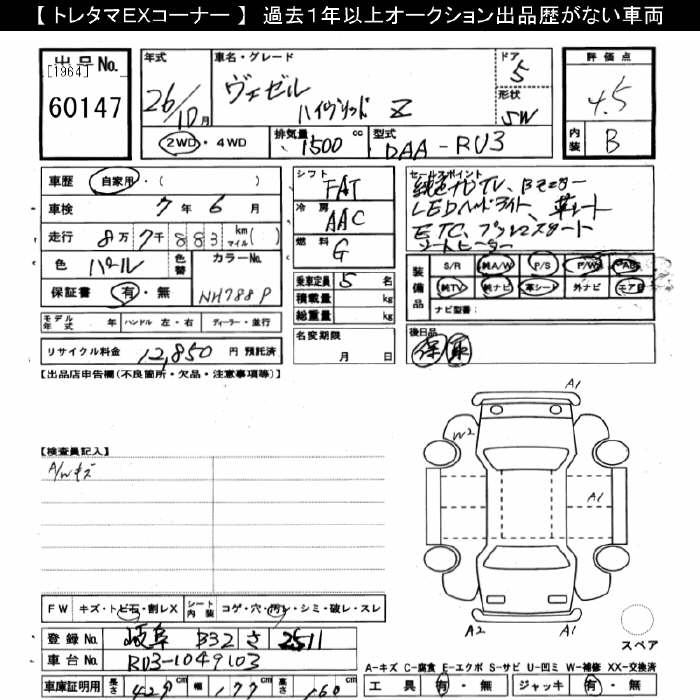 【 トレタマEXコーナー 】 過去1年以上オークション出品歴がない車両
出品No.
[1964]
60147
年式
26/10月
車名・グレード
ヴェゼル
ハイブリッド Z
ドア
5
形状
SW
評価点
4.5
内装
B
2WD・4WD
排気量
1500 cc
型式
DAA-RU3
車歴 自家用・( )
車検 7年 6月
走行 8万 7千 883 km マイル( )
色 パール
色替
カラーNo.
NH788P
保証書 有・無
モデル年式 年
ハンドル 左・右
ディーラー・並行
リサイクル料金 12,850 円 預託済
シフト
FAT
冷房
AAC
燃料
G
乗車定員 5 名
積載量 kg
総重量 kg
名変期限
月 日
セールスポイント
純正ナビTV、Bモニター
LEDヘッドライト、革シート
ETC、プッシュスタート
シートヒーター
装備品
S/R 純A/W P/S P/W ABS
純TV 純ナビ 革シート 外ナビ エアB
ナビ型番:
後日品
保 取
【出品店申告欄(不良箇所・欠品・注意事項等)】
【検査員記入】
A/Wキズ
A1
W2
A1
A2
A1
スペア
FW キズ・トビ石・割レX
シート内装 コゲ・穴・汚レ・シミ・破レ・スレ
登録No. 岐阜 332 さ 2511
車台No. RU3-1049103
車庫証明用 長さ 429 cm 幅 177 cm 高さ 160 cm
A-キズ C-腐食 E-エクボ S-サビ U-凹ミ W-補修 XX-交換済
工具 有・無 ジャッキ 有・無